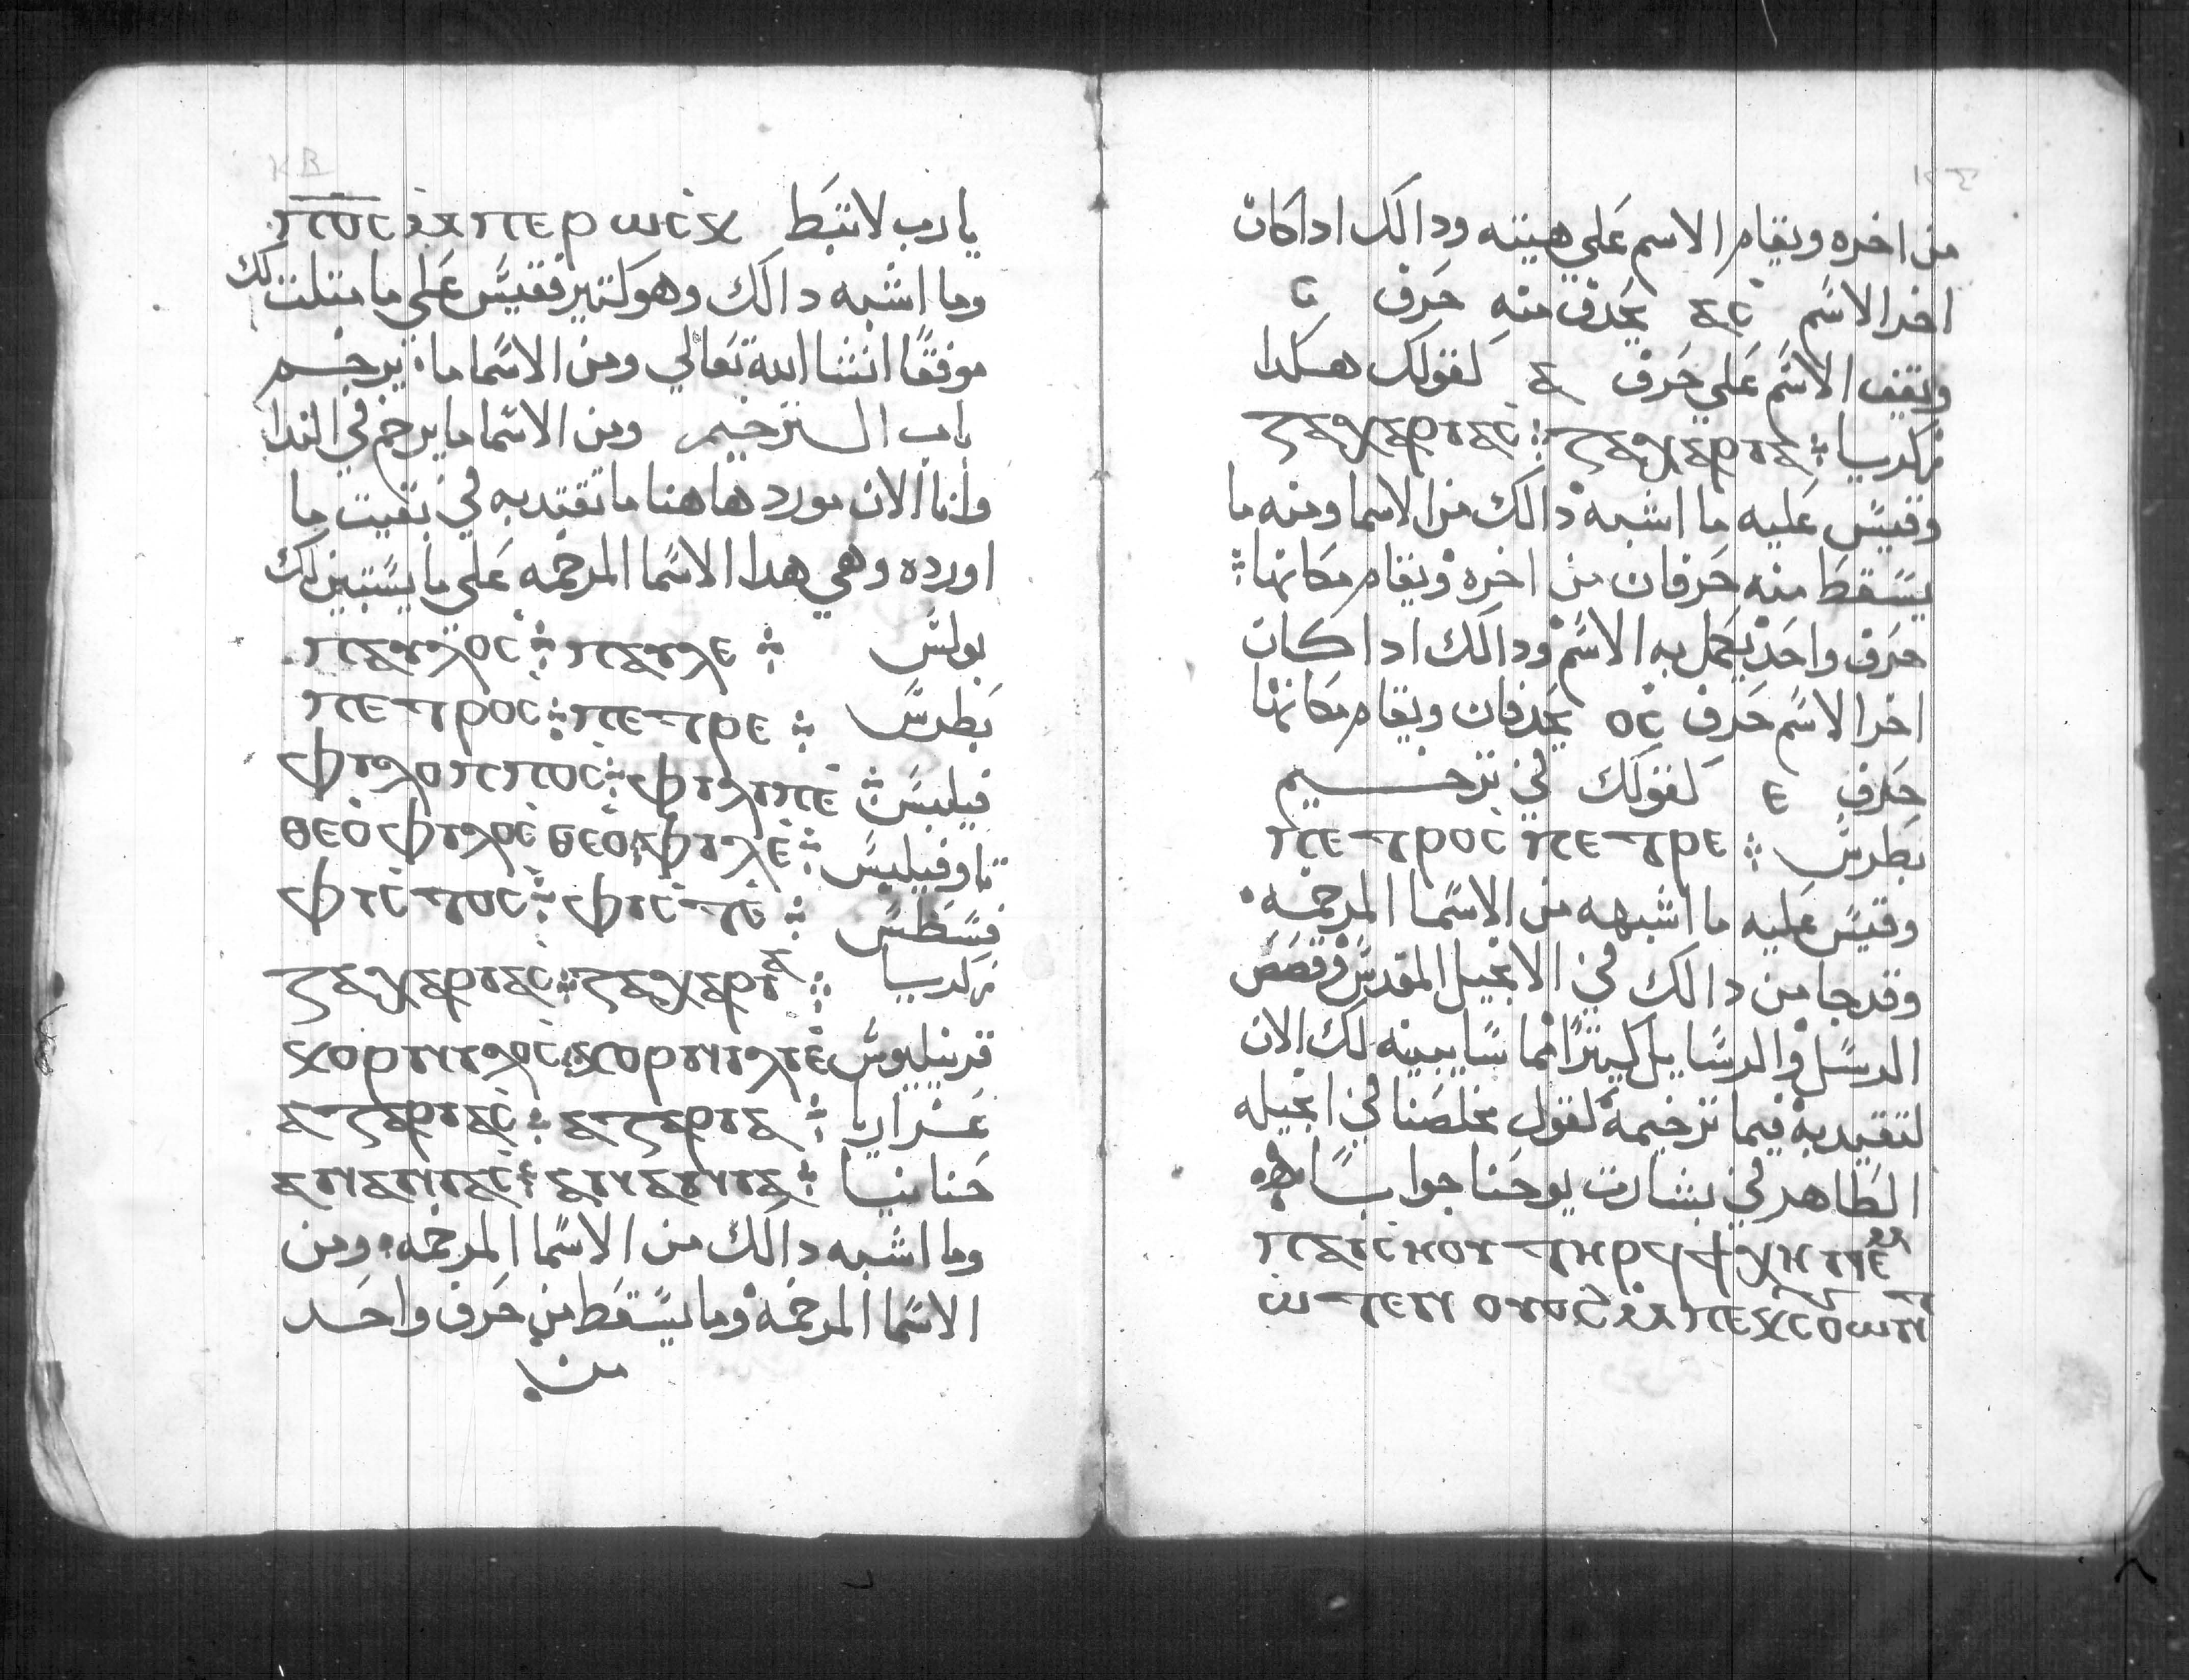 ⲕⲃ
ⲡ̅ⲟ̅ⲥ̅ ⲙⲡⲉⲣⲱⲥⲕ يا رب لا تبَط
وما اشبه دالَك وهو كتير فقيسَ عَلي ما متلت لك
موفقًا انشا الله تعَالي ومن الاسَما ما يرخم
باب الترخيم ومن الاسَما ما يرخم في الندا
وانا الان مورد هاهنا ما تقتد به في بقيت ما
اورده وهي هدا الاسَما المرخمه عَلي ما يسَتبين لك
بولسَ ⲡⲁⲩⲗⲟⲥ ⁘ ⲡⲁⲩⲗⲉ ⁘
بَطرسَ ⲡⲉⲧⲣⲟⲥ ⁘ ⲡⲉⲧⲣⲉ ⁘
فيلبسَ ⲫⲓⲗⲟⲡⲡⲟⲥ ⁘ ⲫⲓⲗⲓⲡⲉ ⁘
تاوفيليسَ ⲑⲉⲟⲫⲓⲗⲟⲥ ⲑⲉⲟⲫⲓⲗⲉ ⁘
فسَطسَ ⲫⲓⲥⲧⲟⲥ ⁘ ⲫⲓⲥⲧⲉ ⁘
زكريا ⲍⲁⲭⲁⲣⲓⲁⲥ ⁘ ⲍⲁⲭⲁⲣⲓⲁ ⁘
قرنيليوسَ ⲕⲟⲣⲛⲓⲗⲟⲥ ⲕⲟⲣⲛⲓⲗⲓⲉ
عَزاريا ⲁⲍⲁⲣⲓⲁⲥ ⁘ ⲁⲍⲁⲣⲓⲁ ⁘
حَنانيا ⲁⲛⲁⲛⲓⲁⲥ ⁘ ⲁⲛⲁⲛⲓⲁ ⁘
وما اشبه دالَك من الاسَما المرخمه ومن
الاسَما المرخمه وما يسَقَط من حَرف واحَد
من
من اخره ويقام الاسم عَلي هيته ودالَك ادا كان
اخر الاسَم ⲁⲥ يحَدف منه حَرف ⲥ
ويقف الاسَم عَلي حَرف ⲁ كقولَك هكدا
زكريا ⁘ ⲍⲁⲭⲁⲣⲓⲁⲥ ⁘ ⲍⲁⲭⲁⲣⲓⲁ
وقيسَ عَليه ما اشبه دالَك من الاسما ومنه ما
يسَقَط منه حَرفان من اخره ويقام مكَانها ⁘
حَرف واحَد يكمل به الاسَم ودالَك ادا كان
اخر الاسَم حَرف ⲟⲥ يحَدفان ويقام مكَانها
حَرف ⲉ كقولَك في ترخيم
بَطرسَ ⁘ ⲡⲉⲧⲣⲟⲥ ⲡⲉⲧⲣⲉ
وقيسَ عَليه ما اشبهه من الاسَما المرخمه
وقد جا من دالَك في الانجيل المقدسَ وقصَصَ
الرسَل والرسَايل كتيرًا فما سَابينه لَك الان
لتقتد به فيما ترخيمه كقول مخلصَنا في انجيله
الطَاهر في بشارت يوحَنا جوابسًا
ⲡⲁⲓⲥⲙⲟⲩ ⲧⲏⲣϥ ϯⲭⲏ ⲛⲉⲙ
ⲱⲧⲉⲛ ⲟⲩⲟϩ ⲙⲡⲉⲕⲥⲟⲩⲱⲛⲧ